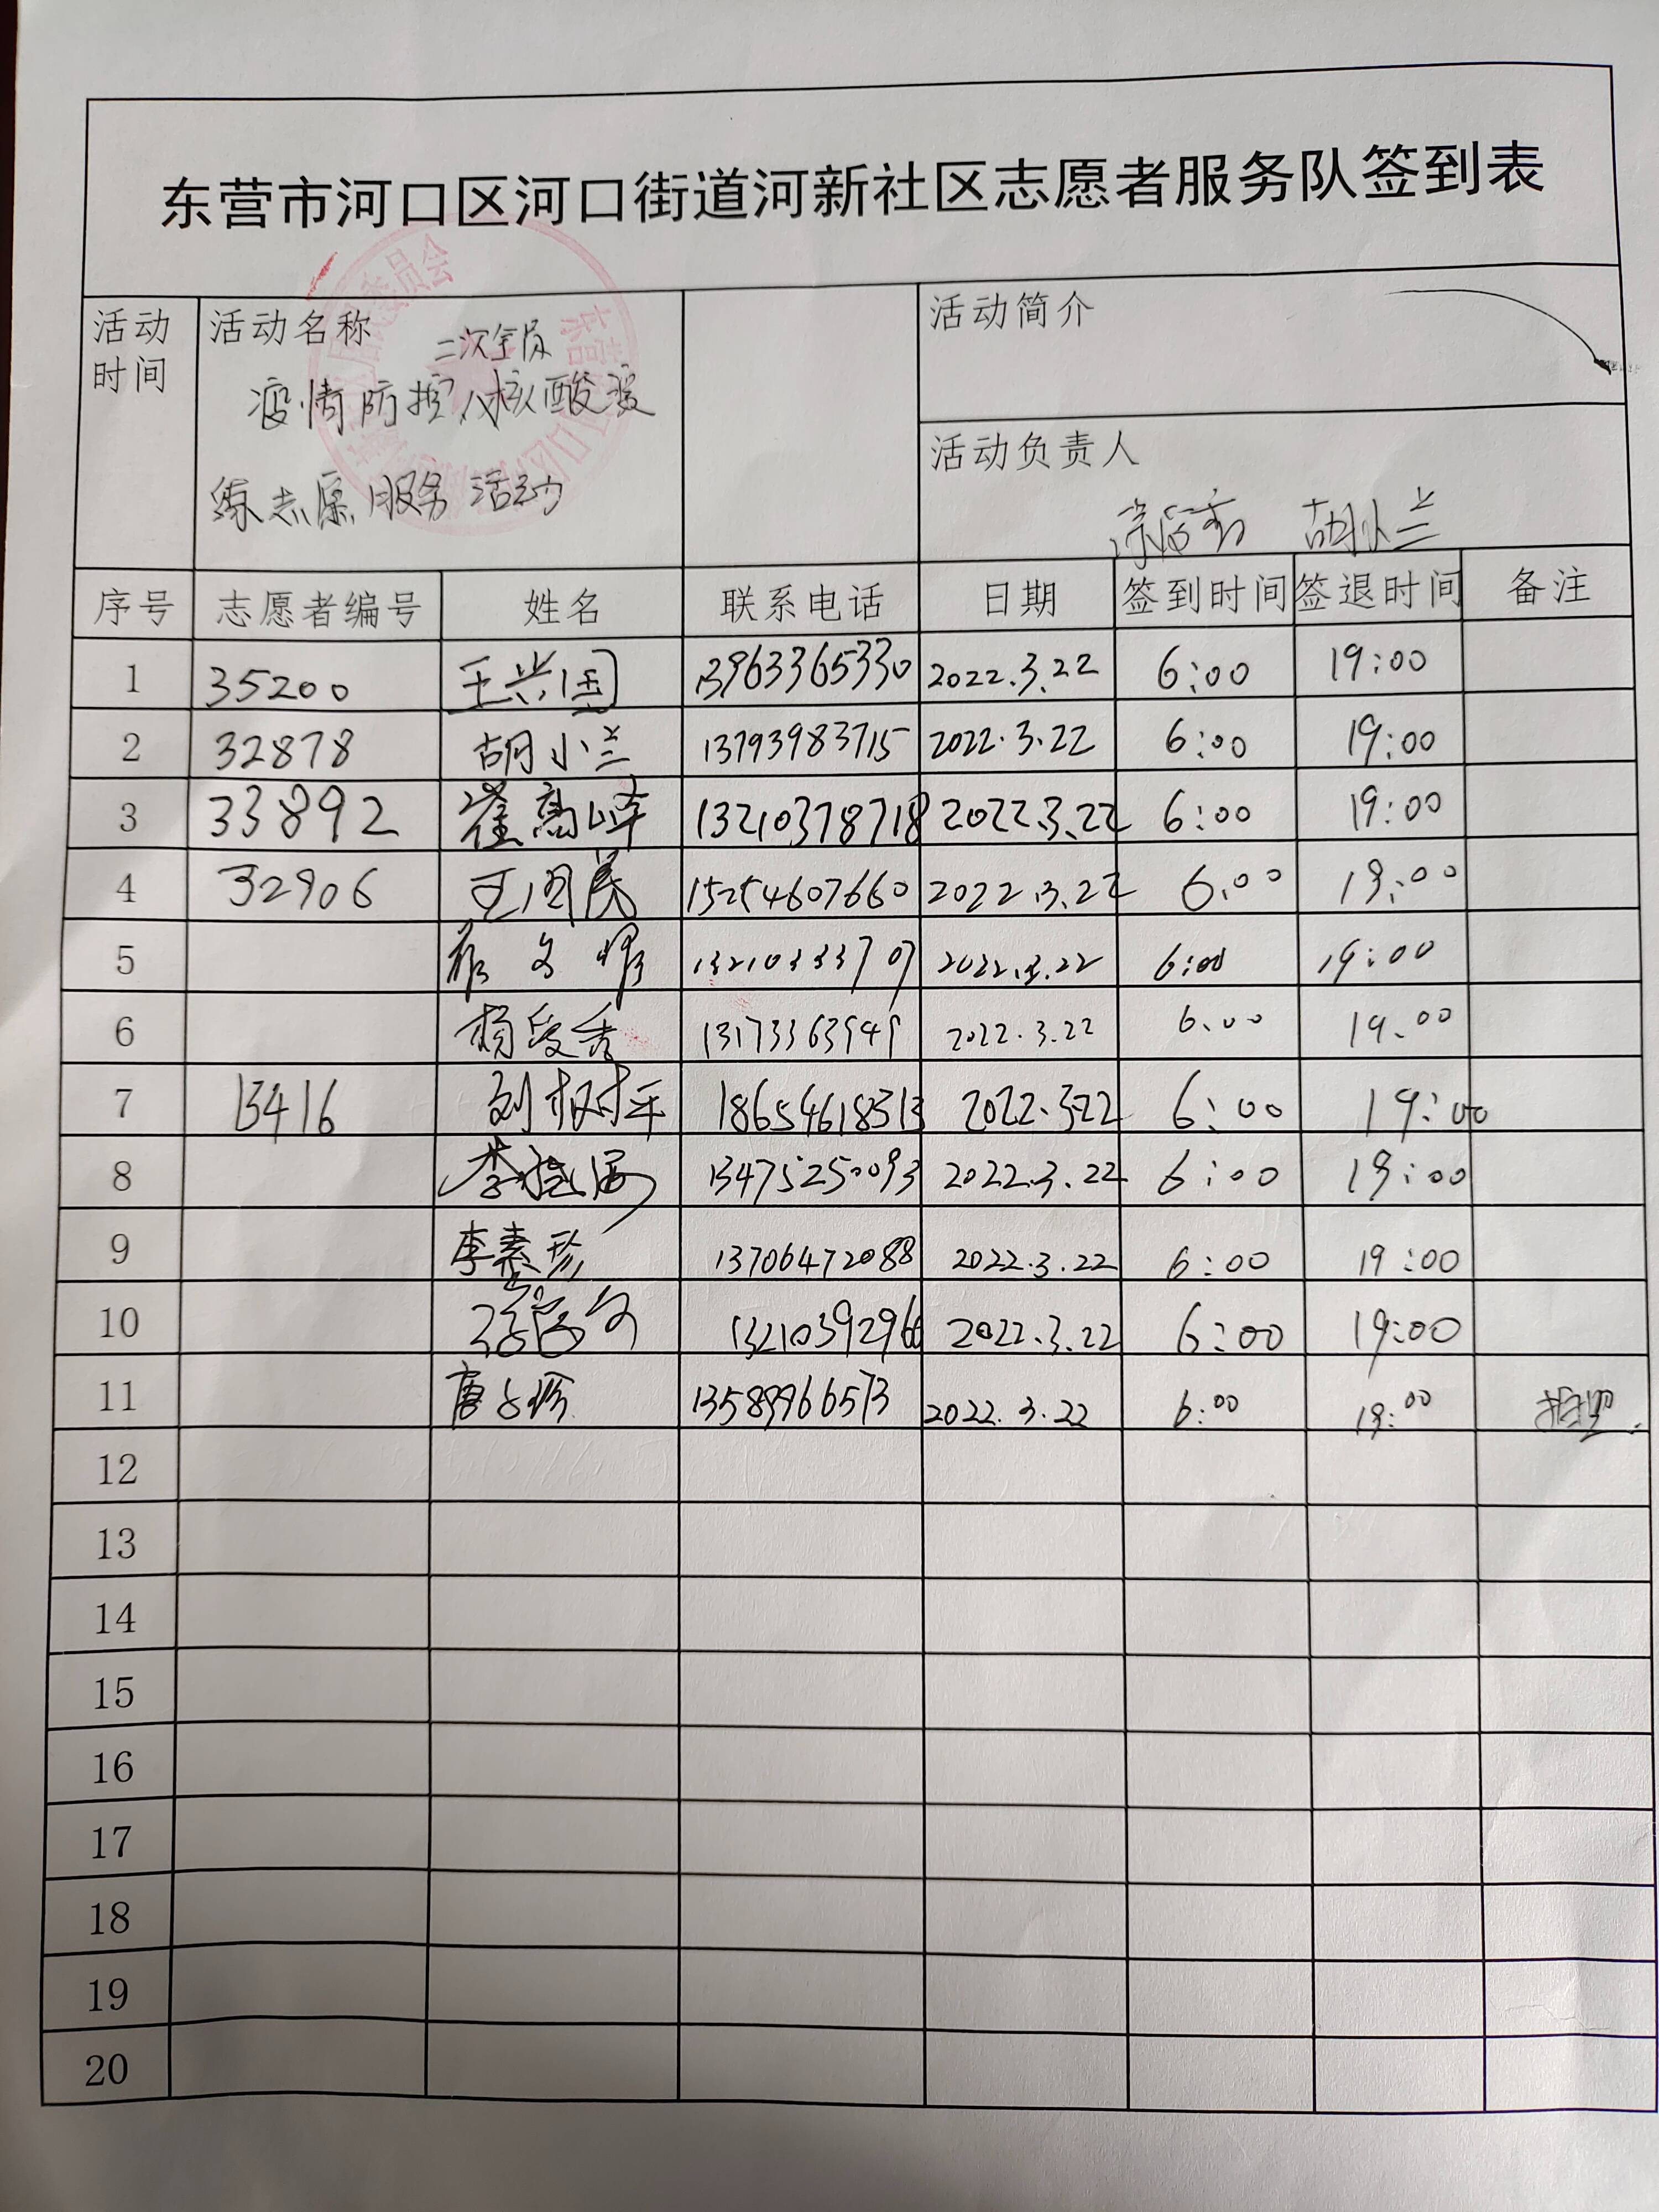 东营市河口区河口街道河新社区志愿者服务队签到表
活动时间
活动名称
二次全员
疫情防控、核酸
志愿服务活动
活动简介
活动负责人
胡小兰
序号 志愿者编号 姓名 联系电话 日期 签到时间 签退时间 备注
1 35200 王兴国 13963365330 2022.3.22 6:00 19:00
2 32878 胡小兰 13793983715 2022.3.22 6:00 19:00
3 33892 崔高峰 13210378718 2022.3.22 6:00 19:00
4 32906 15254607660 2022.3.22 6:00 19:00
5 2022.3.22 6:00 19:00
6 2022.3.22 6.00 19.00
7 13416 刘树平 18654618313 2022.3.22 6:00 19:00
8 13475250093 2022.3.22 6:00 19:00
9 李素珍 13706472088 2022.3.22 6:00 19:00
10 13210392966 2022.3.22 6:00 19:00
11 13589966573 2022.3.22 6:00 19:00
12
13
14
15
16
17
18
19
20